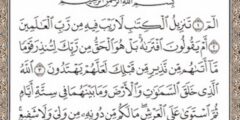 بِسْمِ اللَّهِ الرَّحْمَٰنِ الرَّحِيمِ
الٓمٓ ١ تَنزِيلُ الْكِتَٰبِ لَا رَيْبَ فِيهِ مِن رَّبِّ الْعَٰلَمِينَ
٢ أَمْ يَقُولُونَ افْتَرَىٰهُ بَلْ هُوَ الْحَقُّ مِن رَّبِّكَ لِتُنذِرَ قَوْمًا
مَّآ أَتَىٰهُم مِّن نَّذِيرٍ مِّن قَبْلِكَ لَعَلَّهُمْ يَهْتَدُونَ ٣ اللَّهُ الَّذِي
خَلَقَ السَّمَٰوَٰتِ وَالْأَرْضَ وَمَا بَيْنَهُمَا فِي سِتَّةِ أَيَّامٍ
ثُمَّ اسْتَوَىٰ عَلَى الْعَرْشِ مَا لَكُم مِّن دُونِهِ مِن وَلِيٍّ وَلَا شَفِيعٍ